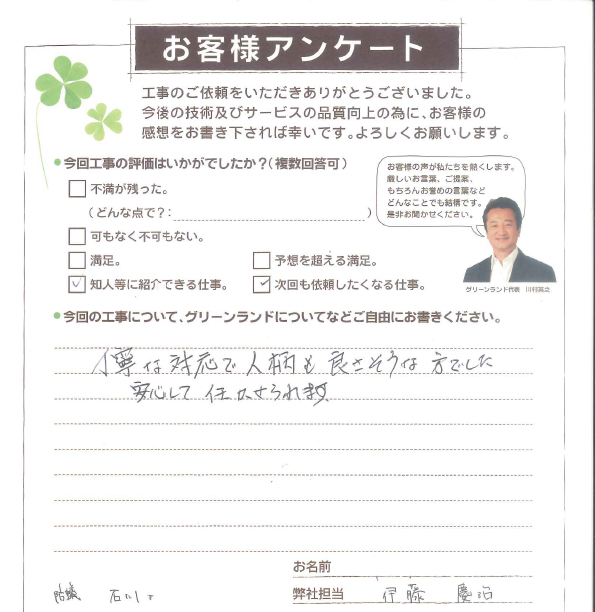 お客様アンケート
工事のご依頼をいただきありがとうございました。
今後の技術及びサービスの品質向上の為に、お客様の
感想をお書き下されば幸いです。よろしくお願いします。
●今回工事の評価はいかがでしたか?(複数回答可)
不満が残った。
(どんな点で?: )
可もなく不可もない。
満足。
予想を超える満足。
知人等に紹介できる仕事。
次回も依頼したくなる仕事。
お客様の声が私たちを熱くします。
厳しいお言葉、ご提案、
もちろんお誉めの言葉など
どんなことでも結構です。
是非お聞かせください。
グリーンランド代表
●今回の工事について、グリーンランドについてなどご自由にお書きください。
丁寧な対応で人柄も良さそうな方でした
安心して任かせられます
お名前
弊社担当 伊藤 慶治